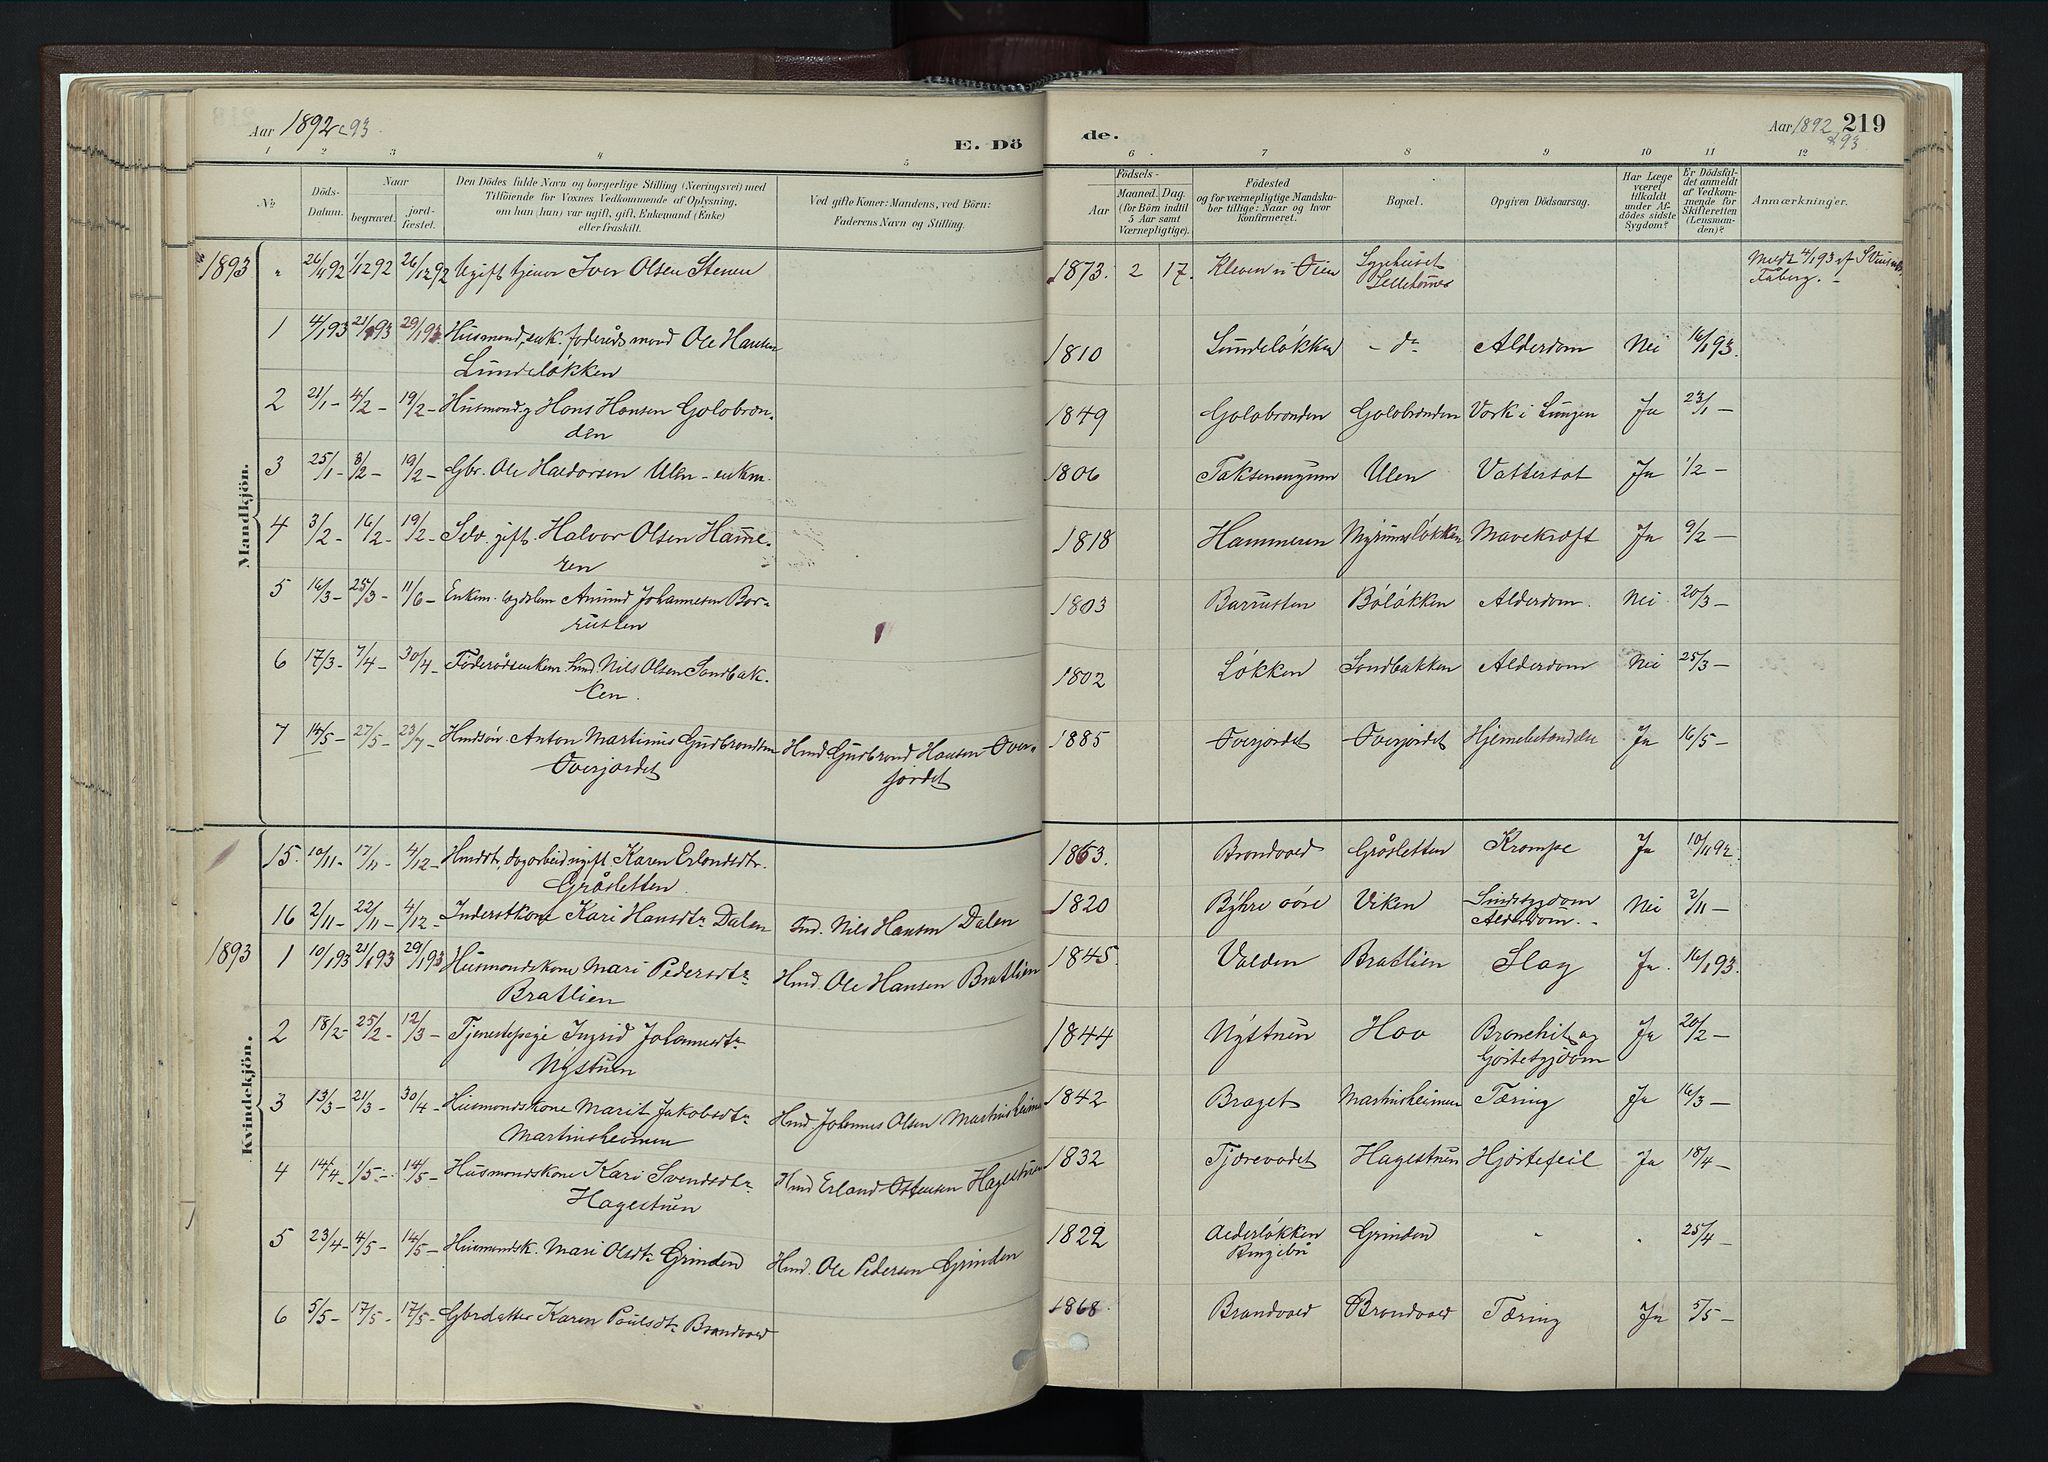 Aar 1892 & 93.
E. Dö
de.
Aar 1892 & 93.
219
1 2 3 4 5 6 7 8 9 10 11 12
No
Döds-Datum.
Naar
begravet.
jord-fæstet.
Den Dödes fulde Navn og borgerlige Stilling (Næringsvei) med
Tilföiende for Voxnes Vedkommende af Oplysning,
om han (hun) var ugift, gift, Enkemand (Enke)
eller fraskilt.
Ved gifte Koner: Mandens, ved Börn:
Faderens Navn og Stilling.
Födsels-
Aar
Maaned. Dag.
(for Börn indtil
5 Aar samt
Værnepligtige).
Födested
og for værnepligtige Mandska-
ber tillige: Naar og hvor
konfirmeret.
Bopæl.
Opgiven Dödsaarsag.
Har Læge
været
tilkaldt
under Af-
dödes sidste
Sygdom?
Er Dödsfal-
det anmeldt
af Vedkom-
mende for
Skifteretten
(Lensman-
den)?
Anmærkninger.
Mandkjön.
1893 " 26/11 92 1/12 92 26/12 92 Ugift tjener Iver Olsen Stenen 1873. 2 17. Kleven i Öien Sygehuset Lillehamer Meldt 4/1 93 af
Faaberg.
1 4/1 93 21/1 93 29/1 93. Husmand, enk. föderåds mand Ole Hansen 1810 Lundeløkken - do Alderdom Nei 16/1 93.
Lundeløkken
2 21/1 - 4/2 - 19/2 - Husmand g Hans Hansen Golobran- 1849 Golobranden Golobranden Værk i Lungen Ja 23/1 -
den
3 25/1 - 8/2 - 19/2 - Gbr. Ole Haldorsen Ulen - enkm. 1806 Ulen Vattersot Ja 1/2 -
4 3/2 - 16/2 - 19/2 - Selv. gift. Halvor Olsen Hamme- 1818 Hammeren Mavekræft Ja 9/2 -
ren
5 16/3 - 25/3 - 11/6 - Enkem. lægdslem Amund Johannesen Bar- 1803 Barrusten Bøløkken Alderdom. Nei 20/3 -
rusten
6 17/3 - 7/4 - 30/4 - Föderådsenkem. hmd. Nils Olsen Sandbak- 1802 Løkken Sandbakken Alderdom Nei 25/3 -
ken.
7 14/5 - 27/5 - 23/7 - Hmdsøn. Anton Martinus Gudbrandsen Hmd. Gudbrand Hansen Over- 1885 Overjordet Overjordet Hjernebetændelse Ja 16/5 -
Overjordet jordet
Kvindekjön.
15. 10/11 - 17/11 - 4/12 - Hmdsdt. dagarbeid ugift Karen Erlandsdtr. 1863. Brandvold Gråsletten Krampe Ja 10/11 92.
Gråsletten
16 2/11 - 22/11 - 4/12 - Inderstkone Kari Hansdtr Dalen Ind. Nils Hansen Dalen 1820 Viken Sindssygdom Nei 2/11 -
Alderdom. -
1893 1 10/1 93 21/1 93 29/1 93 Husmandskone Mari Pedersdtr. Hmd. Ole Hansen Bratlien 1845. Valden Bratlien Slag Ja. 16/1 93.
Bratlien
2 18/2 - 25/2 - 12/3 - Tjenestepige Ingrid Johannesdtr. 1844 Nystuen Hov Bronchit og Ja 20/2 -
Nystuen Hjertesygdom
3 13/3 - 21/3 - 30/4 - Husmandskone Marit Jakobsdtr. Hmd Johannes Olsen Martinsheimen 1842 Braget Martinsheimen Tæring Ja 16/3 -
Martinsheimen
4 14/4 - 1/5 - 14/5 - Husmandskone Kari Svendsdtr. Hmd Erland Ostensen Hagestuen 1832 Tjærevodet Hagestuen Hjertefeil Ja 18/4 -
Hagestuen
5 23/4 - 4/5 - 14/5 - Husmandsk. Mari Olsdtr. Grinden Hmd. Ole Pedersen Grinden 1822 Alderløkken Grinden " " 25/4 -
Ringebu
6 5/5 - 17/5 - 17/5 - Gbrdatter Karen Paulsdtr. Brandvold 1868. Brandvold Brandvold Tæring Ja 5/5 -